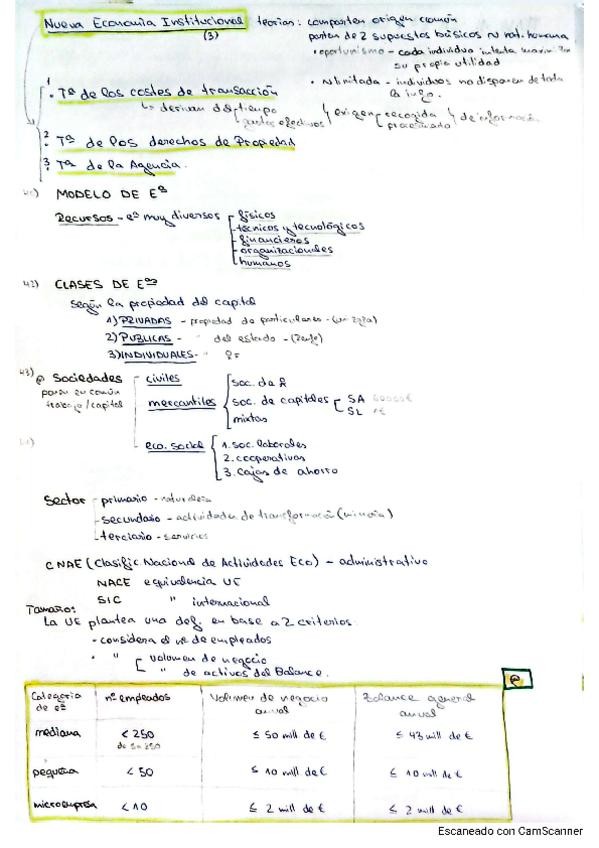 Nueva Economía Institucional teorías: comparten origen común
(3) parten de 2 supuestos básicos
• oportunismo - cada individuo intenta
su propia utilidad
• limitada - individuos no disponen de toda
la info.
1. Tª de los costes de transacción
↳ derivan del tiempo
exigen recogida de información
procesado
2. Tª de los derechos de Propiedad
3. Tª de la Agencia.
MODELO DE Eª
Recursos - eª muy diversos físicos
técnicos y tecnológicos
financieros
organizacionales
humanos
42) CLASES DE Eªs
Según la propiedad del capital
1) PRIVADAS - propiedad de particulares -
2) PUBLICAS - " del estado - (Renfe)
3) INDIVIDUALES - "
43) Sociedades civiles
ponen en común
trabajo/capital
mercantiles soc. de
soc. de capitales SA
SL
mixtas
eco. social 1. soc. laborales
2. cooperativas
3. Cajas de ahorro
Sector primario - naturaleza
secundario - actividades de transformación (minería)
terciario - servicios
CNAE (Clasific. Nacional de Actividades Eco) - administrativo
NACE equivalencia UE
SIC " internacional
Tamaño:
La UE plantea una def. en base a 2 criterios:
• considera el nº de empleados
• " volumen de negocio
" de activos del Balance.
e
Categoría de eª nº empleados Volumen de negocio anual Balance general anual
mediana < 250 ≤ 50 mill de € ≤ 43 mill de €
de 50 a 250
pequeña < 50 ≤ 10 mill de € ≤ 10 mill de €
microempresa < 10 ≤ 2 mill de € ≤ 2 mill de €
Escaneado con CamScanner